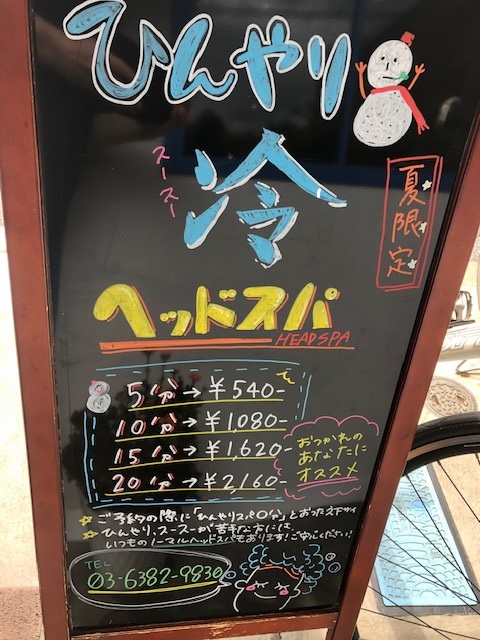 ひんやり
スースー
冷
夏限定
ヘッドスパ
HEADSPA
5分→¥540-
10分→¥1,080-
15分→¥1,620-
20分→¥2,160-
おつかれの
あなたに
オススメ
☆ご予約の際に「ひんやりスパ〇分」とおった え下サイ
☆ひんやり、スースーが苦手な方には、
いつものノーマルヘッドスパもあります!ご安心ください!
TEL
03-6382-9830